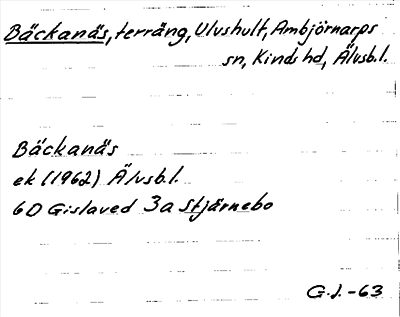 Bäckanäs, terräng, Ulvshult, Ambjörnarps
sn, Kinds hd, Älvsb.l.
Bäckanäs
ek (1962) Älvsb.l.
6D Gislaved 3a Stjärnebo
G.J.-63